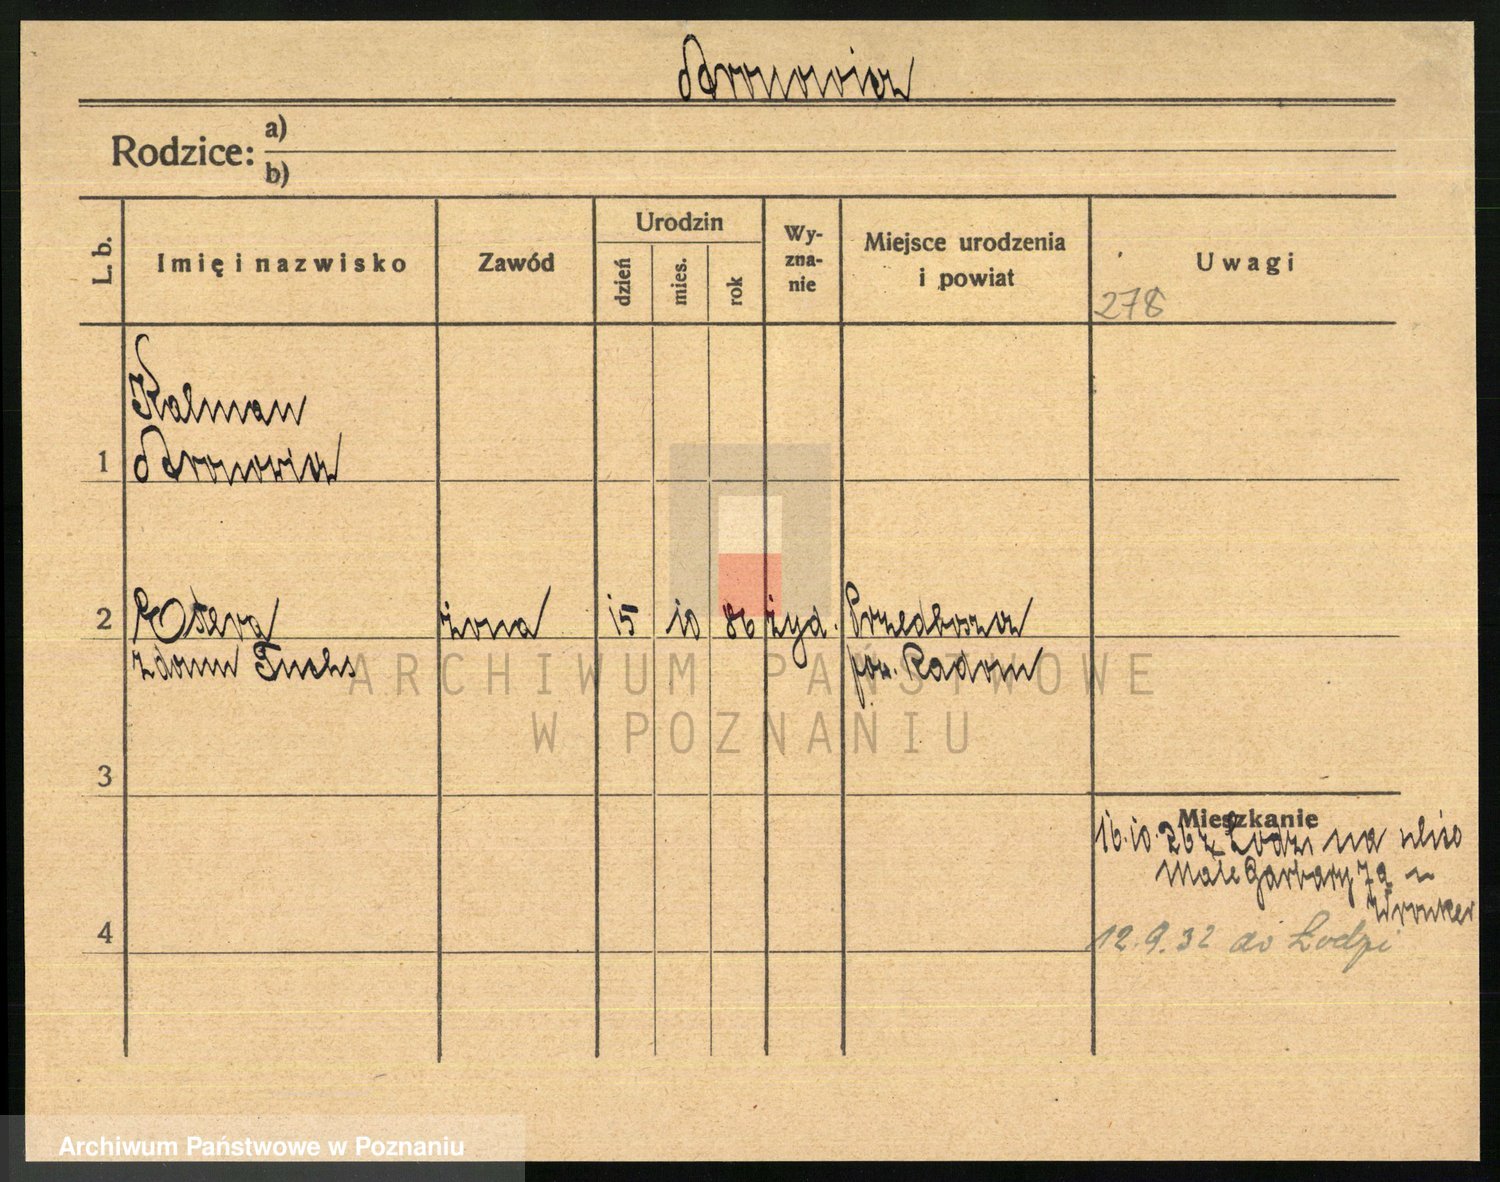 Bronowicz
Rodzice: a)
b)
L. b.
Imię i nazwisko
Zawód
Urodzin
dzień
mies.
rok
Wy-
zna-
nie
Miejsce urodzenia
i powiat
Uwagi
278
1
Kalman
Bronowicz
2
żona
15
10
86
żyd.
Przedborz
pow. Radom
z domu Fuchs
3
Mieszkanie
16.10.26 z Łodzi na ulice
Małe Garbary 7a
4
12.9.32 do Łodzi
ARCHIWUM PAŃSTWOWE
W POZNANIU
Archiwum Państwowe w Poznaniu